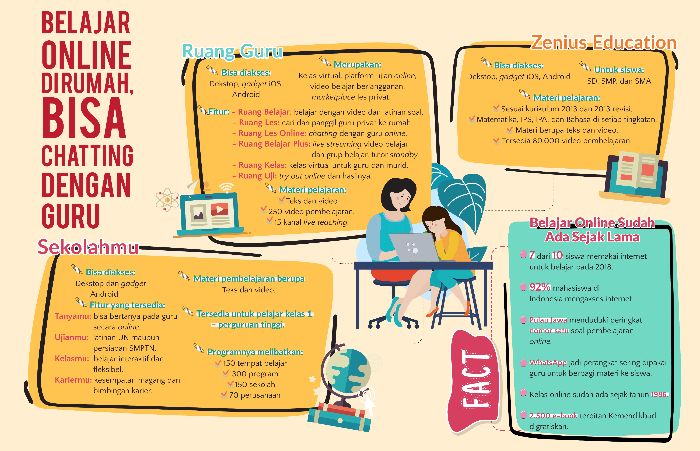 BELAJAR
ONLINE
DIRUMAH,
BISA
CHATTING
DENGAN
GURU
Ruang Guru
Bisa diakses:
Dekstop, gadget iOS
Android
Merupakan:
Kelas virtual, platform ujian online,
video belajar berlangganan,
marketplace les privat.
Fitur:
- Ruang Belajar: belajar dengan video dan latihan soal.
- Ruang Les: cari dan panggil guru privat ke rumah.
- Ruang Les Online: chatting dengan guru online.
- Ruang Belajar Plus: live streaming video belajar
dan grup belajar, tutor standby.
- Ruang Kelas: kelas virtual untuk guru dan murid.
- Ruang Uji: try out online dan hasilnya.
Materi pelajaran:
Teks dan video
250 video pembelajaran.
15 kanal live teaching
Zenius Education
Bisa diakses:
Dekstop, gadget iOS, Android
Untuk siswa:
SD, SMP, dan SMA
Materi pelajaran:
Sesuai kurikulum 2013 dan 2013 revisi.
Matematika, IPS, IPA, dan Bahasa di setiap tingkatan.
Materi berupa teks dan video.
Tersedia 80.000 video pembelajaran
Sekolahmu
Bisa diakses:
Dekstop dan gadget
Android
Fitur yang tersedia:
Tanyamu: bisa bertanya pada guru
secara online.
Ujianmu: latihan UN maupun
persiapan SMPTN.
Kelasmu: belajar interaktif dan
fleksibel.
Kariermu: kesempatan magang dan
bimbingan karier.
Materi pembelajaran berupa
Teks dan video.
Tersedia untuk pelajar kelas 1
- perguruan tinggi.
Programnya melibatkan:
150 tempat belajar
300 program
150 sekolah
70 perusahaan
FACT
Belajar Online Sudah
Ada Sejak Lama
7 dari 10 siswa memakai internet
untuk belajar pada 2018.
92% mahasiswa di
Indonesia mengakses internet
Pulau Jawa menduduki peringkat
nomor satu soal pembelajaran
online.
WhatsApp jadi perangkat sering dipakai
guru untuk berbagi materi ke siswa.
Kelas online sudah ada sejak tahun 1996.
2.500 e-book terbitan Kemendikbud
digratiskan.